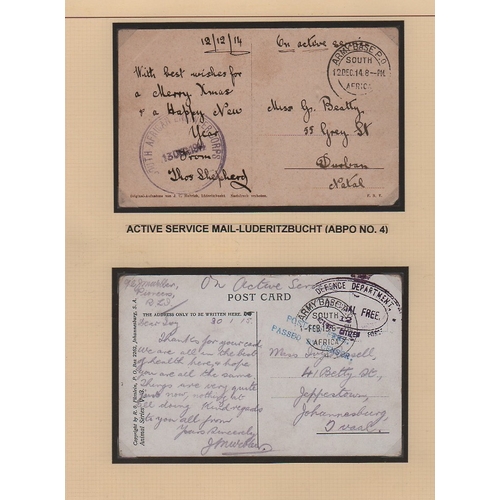 12/12/14
On active service
ARMY BASE P.O.
SOUTH
12 DEC.14. 8-PM
AFRICA
With best wishes for
a Merry Xmas
& a Happy New
Year
From
Thos Shepherd
Miss G. Beatty.
55 Grey St
Durban
Natal
ACTIVE SERVICE MAIL-LUDERITZBUCHT (ABPO NO. 4)
On Active Service
POST CARD
THE ADDRESS ONLY TO BE WRITEN HERE.
DEFENCE DEPARTMENT.
OFFICIAL FREE.
ARMY BASE
SOUTH
FEB 1915
AFRICA
PASSED
30.1.15
Thanks for your card.
We are all in the best
of health here, & hope
you are all the same
Things are very quite
here now, nothing at
all doing. Kind regards
to you all from
Yours Sincerely
Miss
41 Betty St,
Jeppestown,
Johannesburg,
Tvaal.
Copyright by R. O. Füsslein, P.O. Box 2582, Johannesburg, S. A.